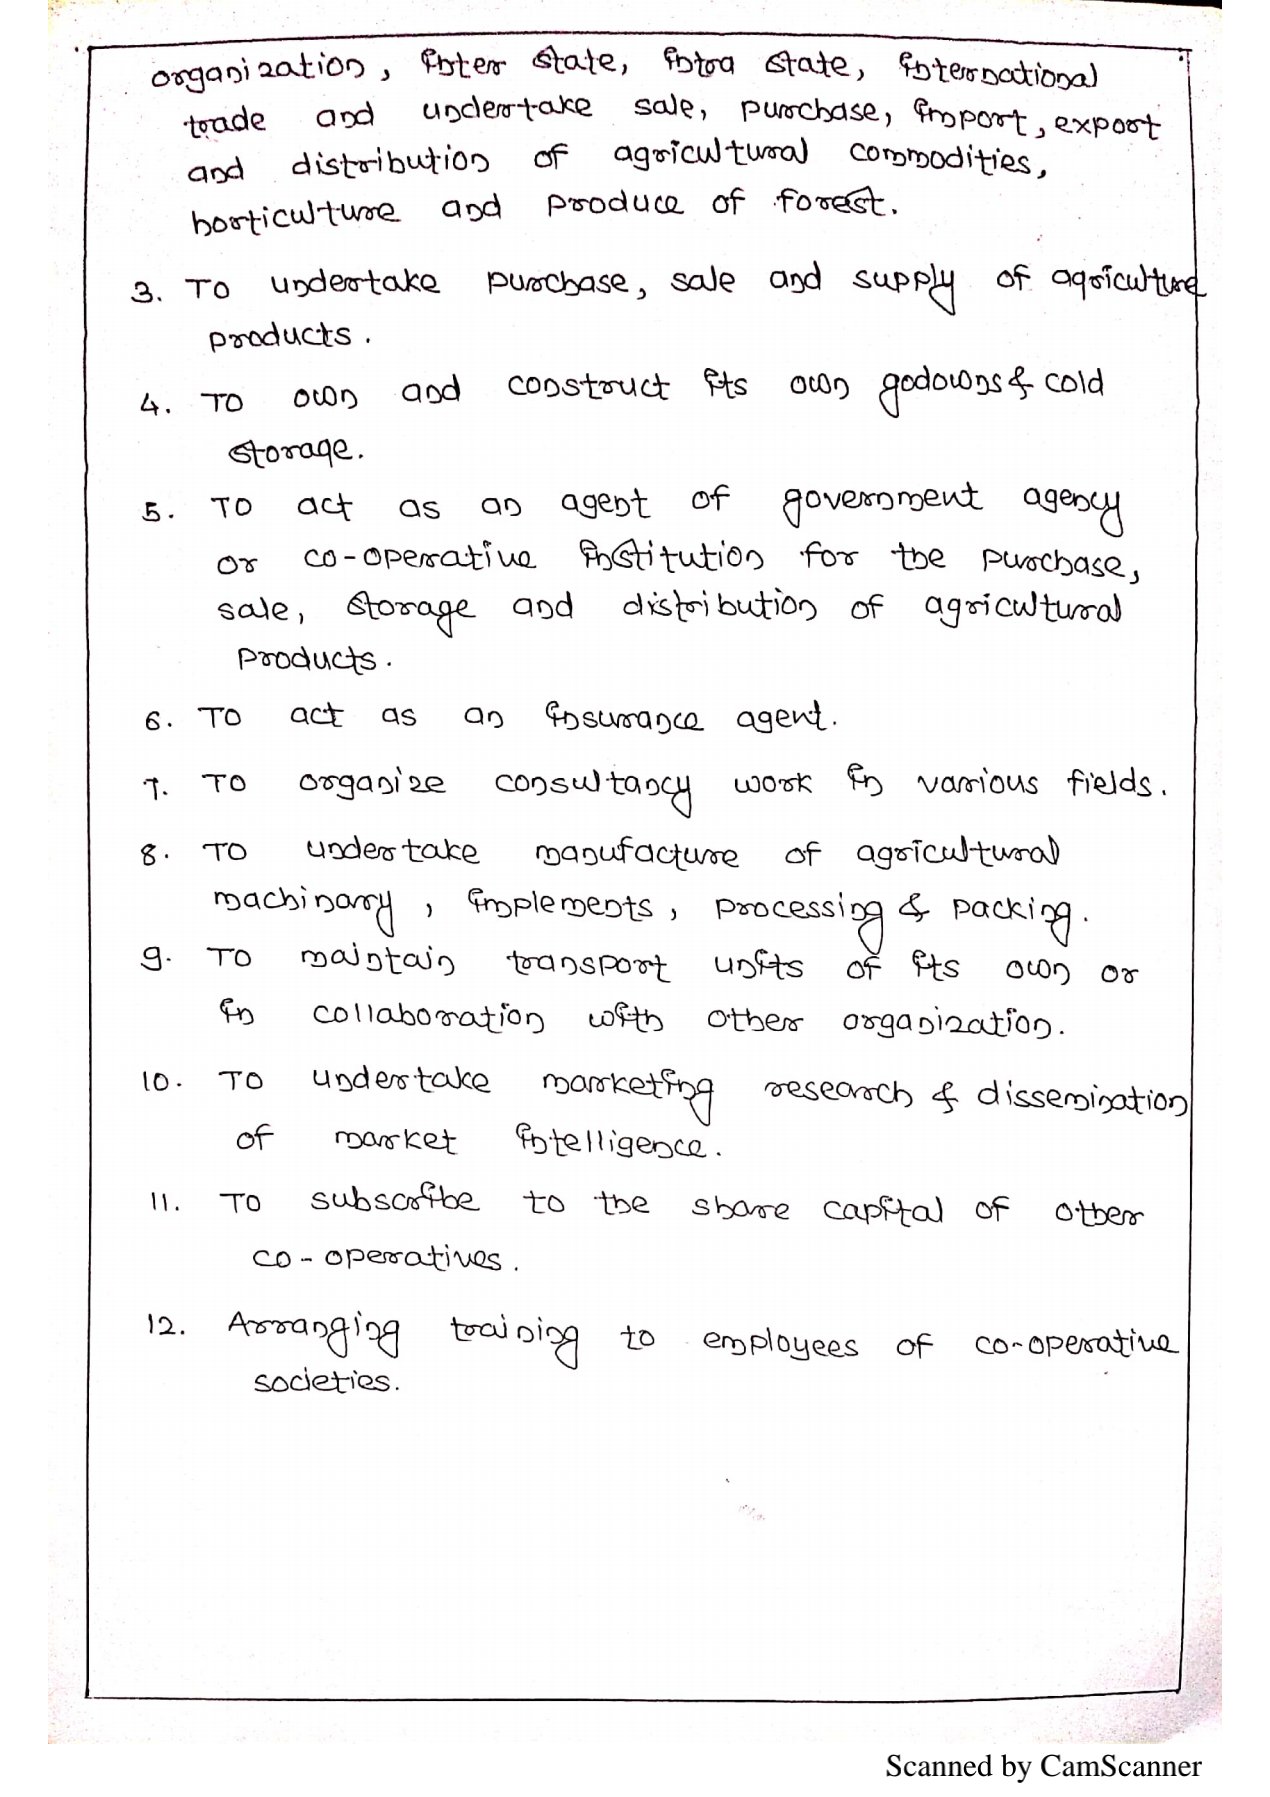 organization, inter state, intra state, international
trade and undertake sale, purchase, import, export
and distribution of agricultural commodities,
horticulture and produce of forest.
3. To undertake purchase, sale and supply of agriculture
products.
4. To own and construct its own godowns & cold
storage.
5. To act as an agent of government agency
or co-operative institution for the purchase,
sale, storage and distribution of agricultural
products.
6. To act as an insurance agent.
7. To organize consultancy work in various fields.
8. To undertake manufacture of agricultural
machinary, implements, processing & packing.
9. To maintain transport units of its own or
in collaboration with other organization.
10. To undertake marketing research & dissemination
of market intelligence.
11. To subscribe to the share capital of other
co-operatives.
12. Arranging training to employees of co-operative
societies.
Scanned by CamScanner